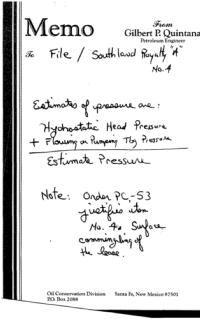 Memo
From
Gilbert P. Quintana
Petroleum Engineer
To File / Southland Royalty "A"
No. 4
Estimates of pressure are:
Hydrostatic Head Pressure
+ Flowing or Pumping Tbg Pressure
Estimate Pressure
Note: Order PC-53
justifies item
No. 4. Surface
commingling of
the lease.
Oil Conservation Division Santa Fe, New Mexico 87501
P.O. Box 2088